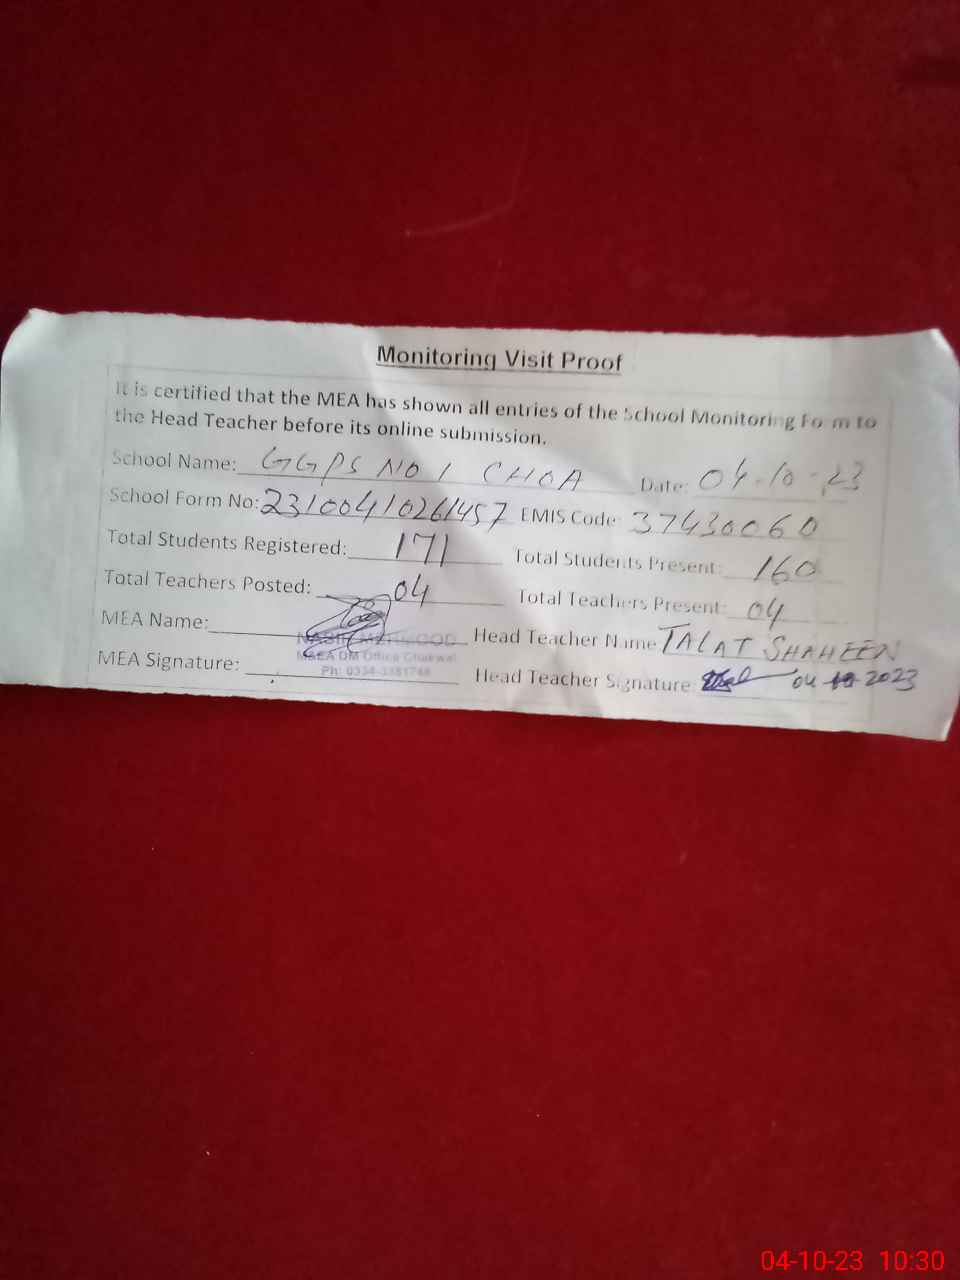 Monitoring Visit Proof
It is certified that the MEA has shown all entries of the School Monitoring Form to
the Head Teacher before its online submission.
School Name: GGPS NO 1 CHOA Date: 04-10-23
School Form No: 23100410261457 EMIS Code: 37430060
Total Students Registered: 171 Total Students Present: 160
Total Teachers Posted: 04 Total Teachers Present: 04
MEA Name: MEHMOOD Head Teacher Name TALAT SHAHEEN
DM Office Chakwal
MEA Signature: Head Teacher Signature: 04 10 2023
Ph: 0334-
04-10-23 10:30